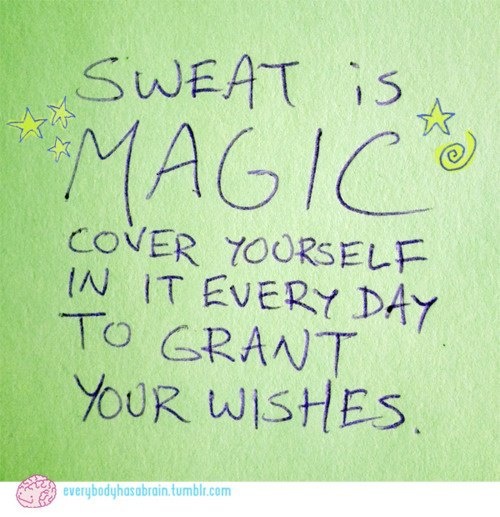 SWEAT is
MAGIC
COVER YOURSELF
IN IT EVERY DAY
TO GRANT
YOUR WISHES.
everybodyhasabrain.tumblr.com